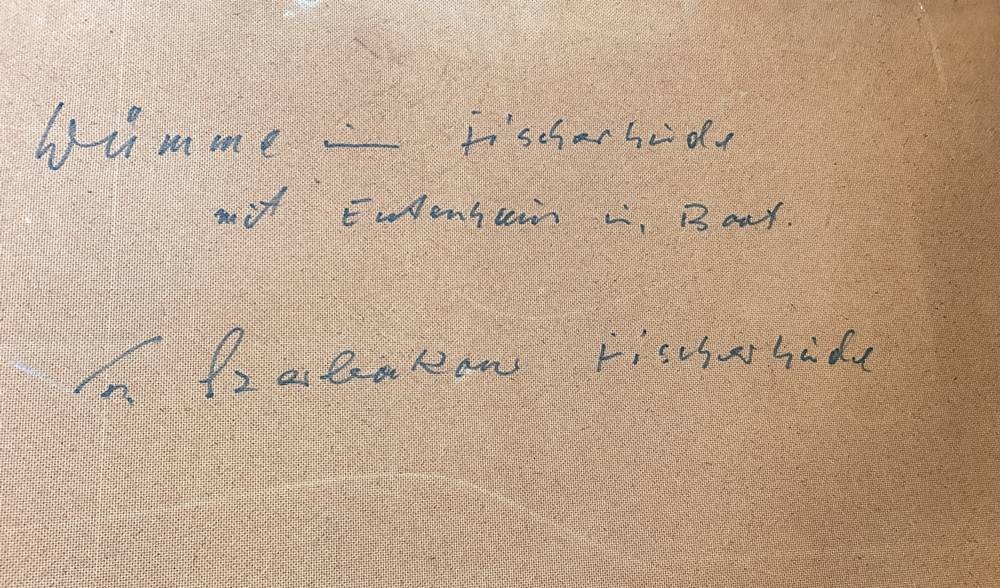 Wümme in Fischerhude
mit Entenhaus Boot.
Szerbakow Fischerhude